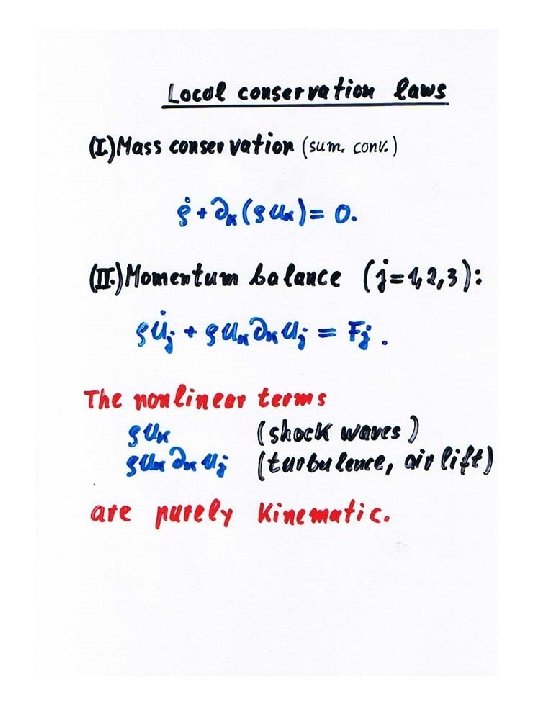 Local conservation laws
(I.) Mass conservation (sum. conv.)
ρ̇ + ∂ₖ(ρuₖ) = 0.
(II.) Momentum balance (j=1,2,3):
ρu̇ⱼ + ρuₖ∂ₖuⱼ = Fⱼ.
The nonlinear terms
ρuₖ (shock waves)
ρuₖ∂ₖuⱼ (turbulence, air lift)
are purely Kinematic.